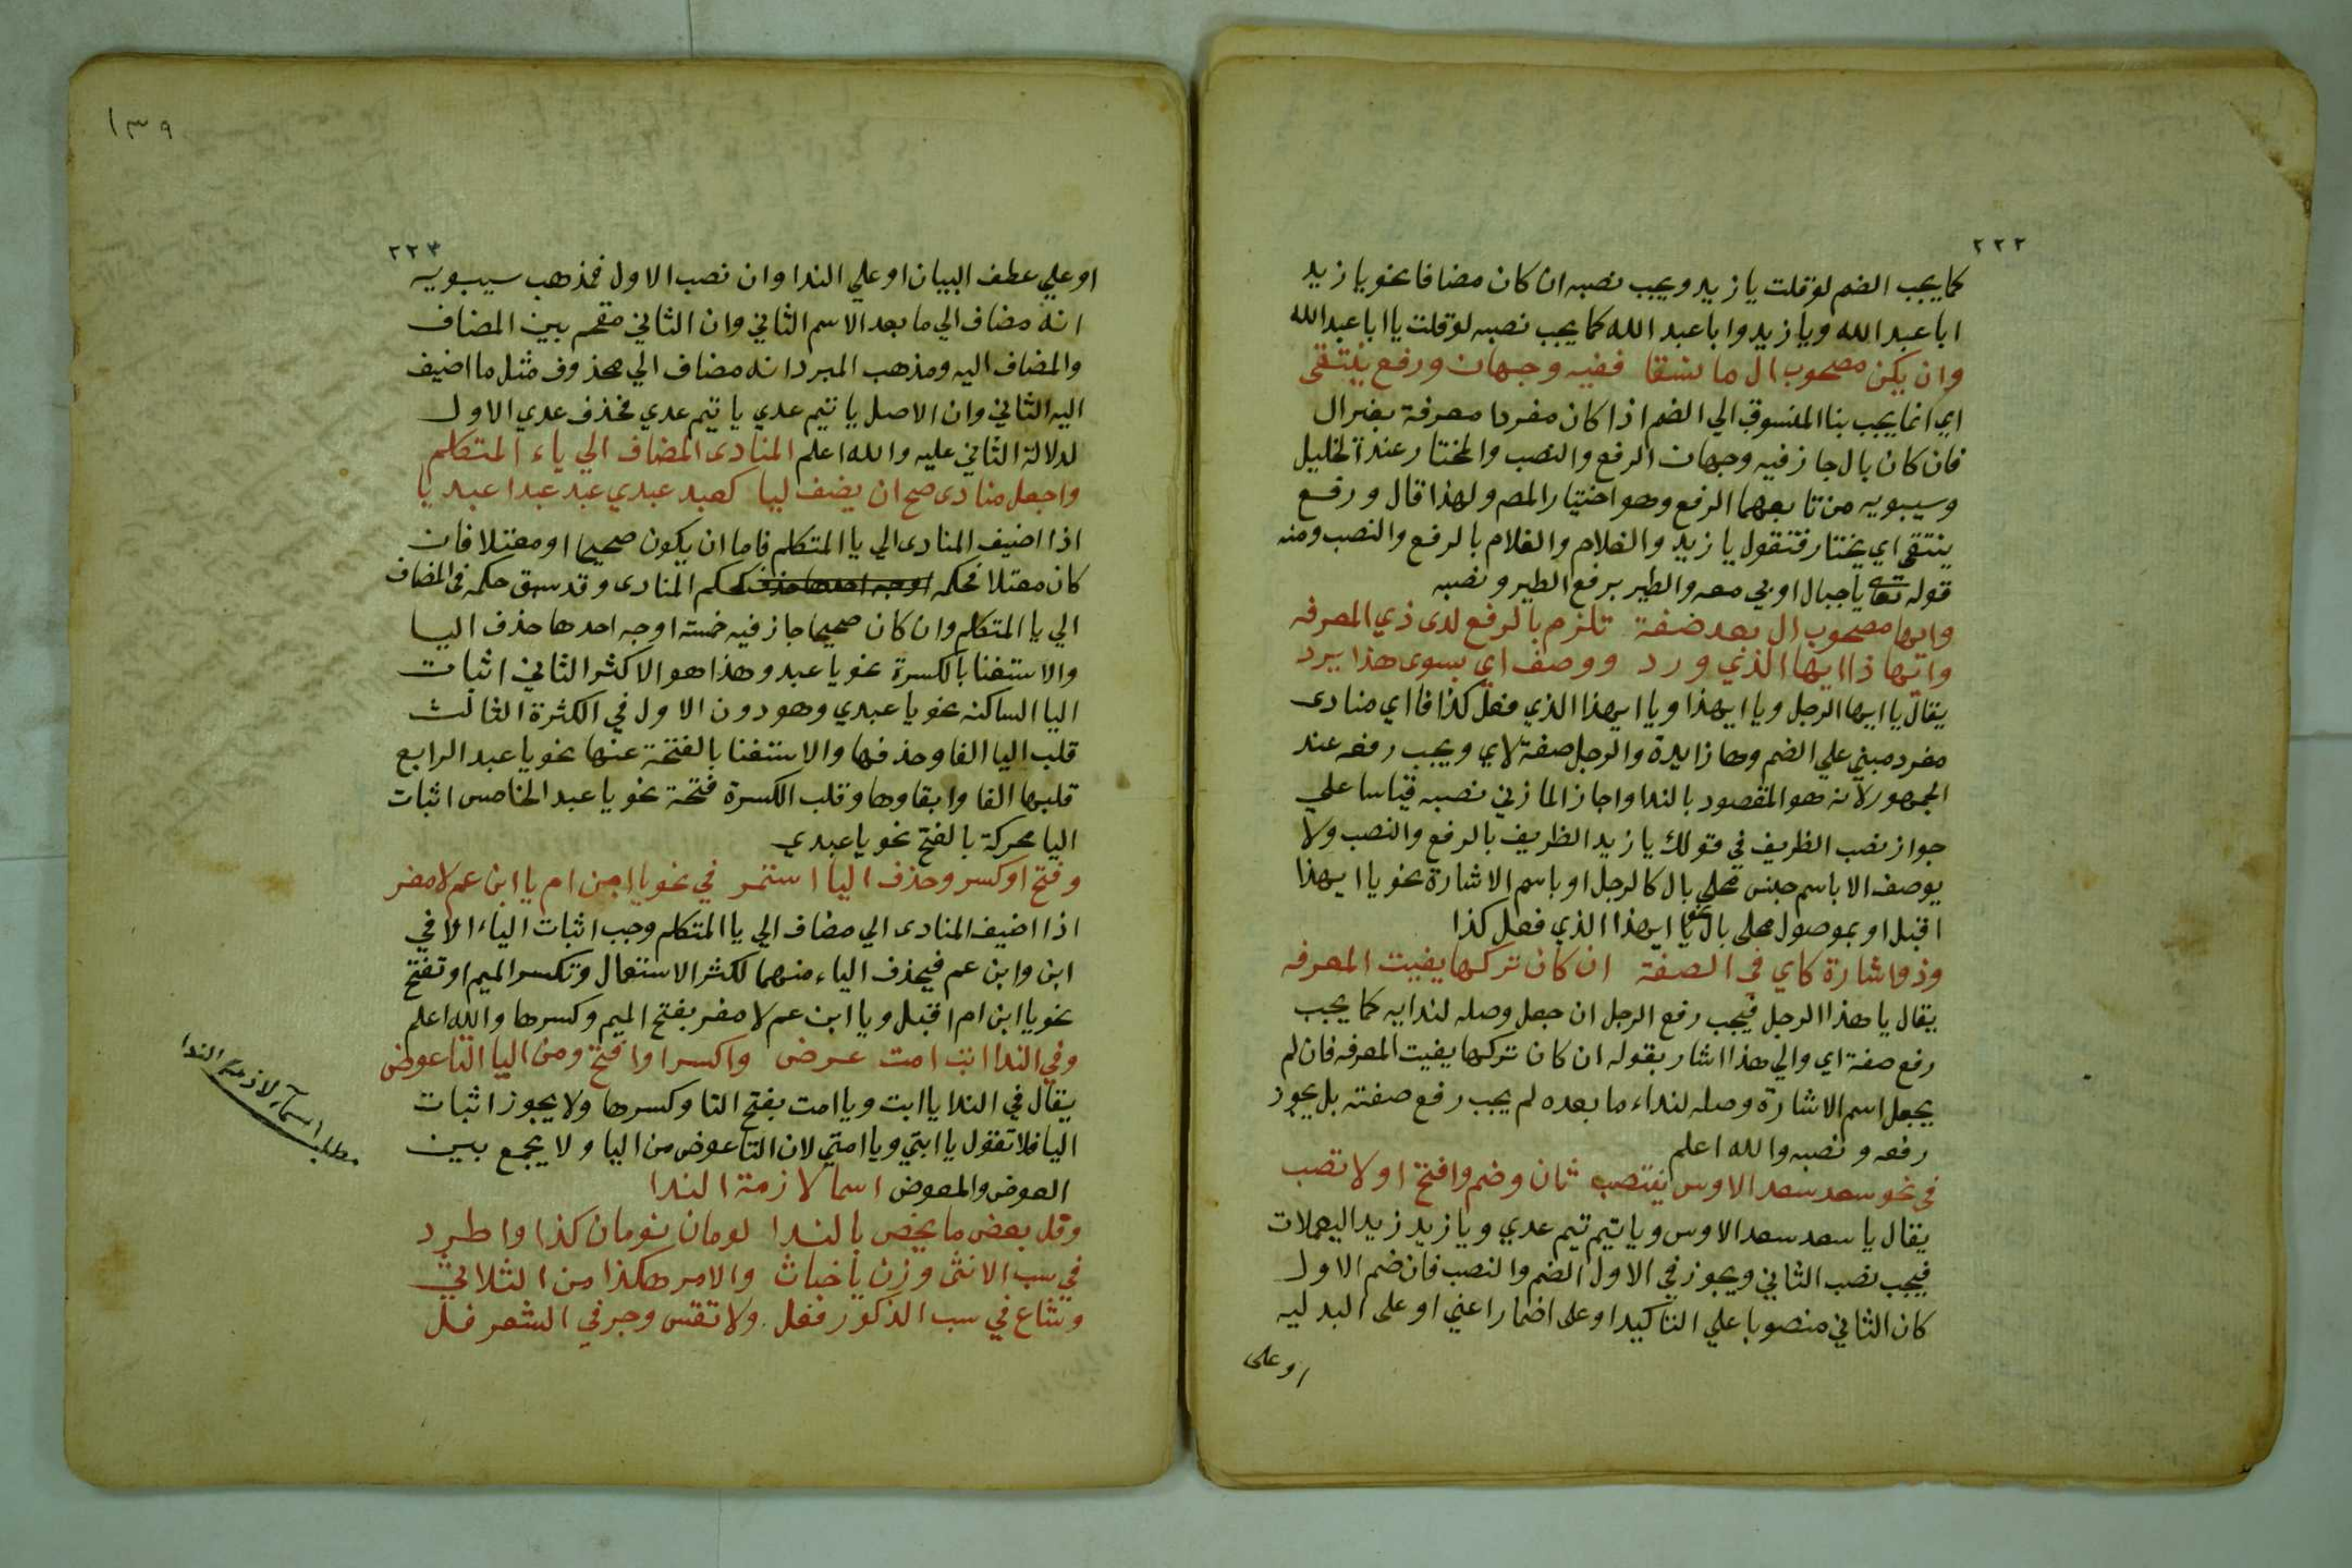 ٢٢٢
كما يجب الضم لو قلت يا زيد ويجب نصبه ان كان مضافا نحو يا زيد
ابا عبد الله ويا زيد وابا عبد الله كما يجب نصبه لو قلت يا ابا عبد الله
وان يكن مصحوب ال ما نسقا ففيه وجهان ورفع ينتقى
اي انما يجب بنا المنسوق الي الضم اذا كان مفردا معرفة بغير ال
فان كان بال جاز فيه وجهان الرفع والنصب والمختار عند الخليل
وسيبويه من تابعهما الرفع وهو اختيار المص ولهذا قال ورفع
ينتقى اي يختار فتقول يا زيد والغلام والغلام بالرفع والنصب ومنه
قوله تعا يا جبال اوبي معه والطير برفع الطير ونصبه
وايها مصحوب ال بعد صفة تلزم بالرفع لدى ذي المعرفه
وايها ذا ايها الذي ورد ووصف اي بسوى هذا يرد
يقال يا ايها الرجل ويا ايهذا ويا ايهذا الذي فعل كذا فا اي منادى
مفرد مبني علي الضم وها زايدة والرجل صفة لاي ويجب رفعه عند
الجمهور لانه هو المقصود بالندا واجاز المازني نصبه قياسا علي
جواز نصب الظريف في قولك يا زيد الظريف بالرفع والنصب ولا
يوصف الا باسم جنس محلي بال كالرجل او باسم الاشارة نحو يا ايهذا
اقبل او بموصول محلى بال نحو يا ايهذا الذي فعل كذا
وذو اشارة كاي في الصفة ان كان تركها يفيت المعرفه
يقال يا هذا الرجل فيجب رفع الرجل ان جعل وصله لندايه كما يجب
رفع صفة اي والي هذا اشار بقوله ان كان تركها يفيت المعرفه فان لم
يجعل اسم الاشارة وصله لنداء ما بعده لم يجب رفع صفته بل يجوز
رفعه ونصبه والله اعلم
في نحو سعد سعد الاوس ينتصب ثان وضم وافتح اولا تصب
يقال يا سعد سعد الاوس ويا تيم تيم عدي ويا زيد زيد اليعملات
فيجب نصب الثاني ويجوز في الاول الضم والنصب فان ضم الاول
كان الثاني منصوبا علي التاكيد او على اضمار اعني او على البدليه
او على
١٣٩
٢٢٣
او علي عطف البيان او علي الندا وان نصب الاول فمذهب سيبويه
انه مضاف الي ما بعد الاسم الثاني وان الثاني مقحم بين المضاف
والمضاف اليه ومذهب المبرد انه مضاف الي محذوف مثل ما اضيف
اليه الثاني وان الاصل يا تيم عدي يا تيم عدي فحذف عدي الاول
لدلالة الثاني عليه والله اعلم المنادى المضاف الي ياء المتكلم
واجعل منادى صح ان يضف ليا كعبد عبدي عبد عبدا عبديا
اذا اضيف المنادى الي يا المتكلم فاما ان يكون صحيحا او معتلا فان
كان معتلا فحكمه اوجه احدها حذف كحكم المنادى وقد سبق حكمه في المضاف
الي يا المتكلم وان كان صحيحا جاز فيه خمسة اوجه احدها حذف اليا
والاستغنا بالكسرة نحو يا عبد وهذا هو الاكثر الثاني اثبات
اليا الساكنه نحو يا عبدي وهو دون الاول في الكثرة الثالث
قلب اليا الفا وحذفها والاستغنا بالفتحة عنها نحو يا عبد الرابع
قلبها الفا وابقاوها وقلب الكسرة فتحة نحو يا عبد الخامس اثبات
اليا محركة بالفتح نحو يا عبدي
وفتح او كسر وحذف اليا استمر في نحو يا ابن ام يا ابن عم لا مفر
اذا اضيف المنادى الي مضاف الي يا المتكلم وجب اثبات الياء الا في
ابن وابن عم فيحذف الياء منهما لكثر الاستعمال وتكسر الميم او تفتح
نحو يا ابن ام اقبل ويا ابن عم لا مفر بفتح الميم وكسرها والله اعلم
وفي الندا ابت امت عرض واكسر او افتح ومن اليا التا عوض
يقال في الندا يا ابت ويا امت بفتح التا وكسرها ولا يجوز اثبات
اليا فلا تقول يا ابتي ويا امتي لان التا عوض من اليا ولا يجمع بين
العوض والمعوض اسما لازمة الندا
وقل بعض ما يخص بالندا لومان نومان كذا واطرد
في سب الانثى وزن يا خباث والامر هكذا من الثلاثي
وشاع في سب الذكور فعل ولا تقس وجر في الشعر فل
مطلب اسماء لازمة الندا